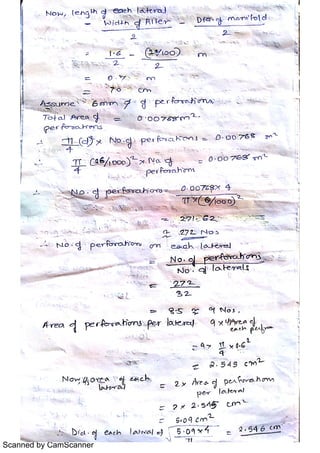 Now, length of each lateral
= Width of filter - Dia. of manifold
2 2
= 1.6 - (20/100) m
2 2
= 0.7 m
= 70 cm
Assume 6mm φ of perforations
Total Area of = 0.00768 m².
perforations
∴ π/4 (d)² × No. of perforations = 0.00768 m²
∴ π/4 (6/1000)² × No. of perforation = 0.00768 m²
∴ No. of perforations = 0.00768 × 4
π × (6/1000)²
= 271.62
≈ 272 Nos
∴ No. of perforation on each lateral
= No. of perforations
No. of laterals
= 272
32
= 8.5 ≈ 9 Nos.
Area of perforations per lateral = 9 × Area of each perform
= 9 × π/4 × 0.6²
= 2.545 cm²
Now, area of each lateral = 2 × Area of perforations per lateral
= 2 × 2.545 cm²
= 5.09 cm²
∴ Dia. of each lateral = √ 5.09 × 4 = 2.546 cm
π
Scanned by CamScanner